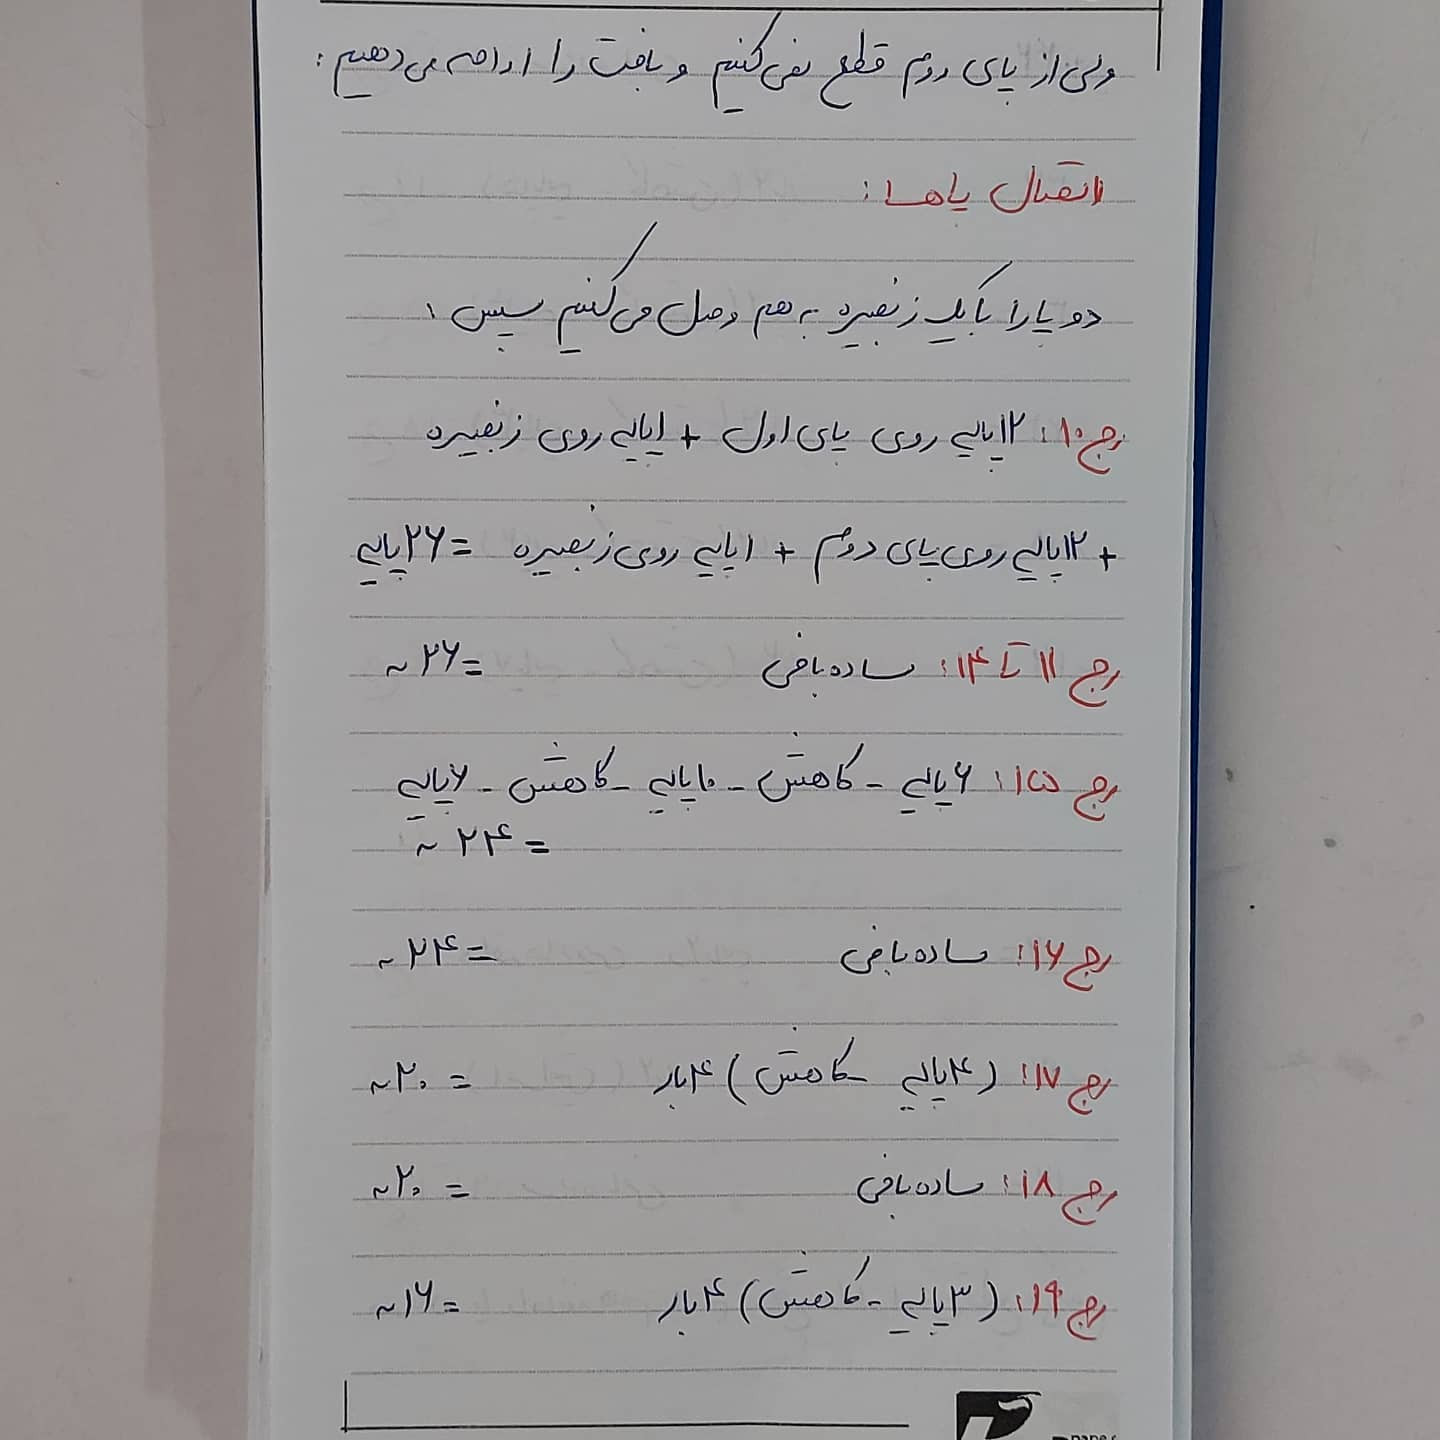 ولی از پای دوم قطع نمی‌کنیم و بافت را ادامه می‌دهیم :
اتصال پاها :
دو پا را با یک زنجیره به هم وصل می‌کنیم سپس :
رج ۱۰ : ۱۲ پایه روی پای اول + ۱ پایه روی زنجیره
+ ۱۲ پایه روی پای دوم + ۱ پایه روی زنجیره = ۲۶ پایه
رج ۱۱ تا ۱۴ : ساده بافی = ۲۶ ~
رج ۱۵ : ۶ پایه - کاهش - ۱۰ پایه - کاهش - ۶ پایه
= ۲۴ ~
رج ۱۶ : ساده بافی = ۲۴ ~
رج ۱۷ : ( ۴ پایه - کاهش ) ۴ بار = ۲۰ ~
رج ۱۸ : ساده بافی = ۲۰ ~
رج ۱۹ : ( ۳ پایه - کاهش ) ۴ بار = ۱۶ ~